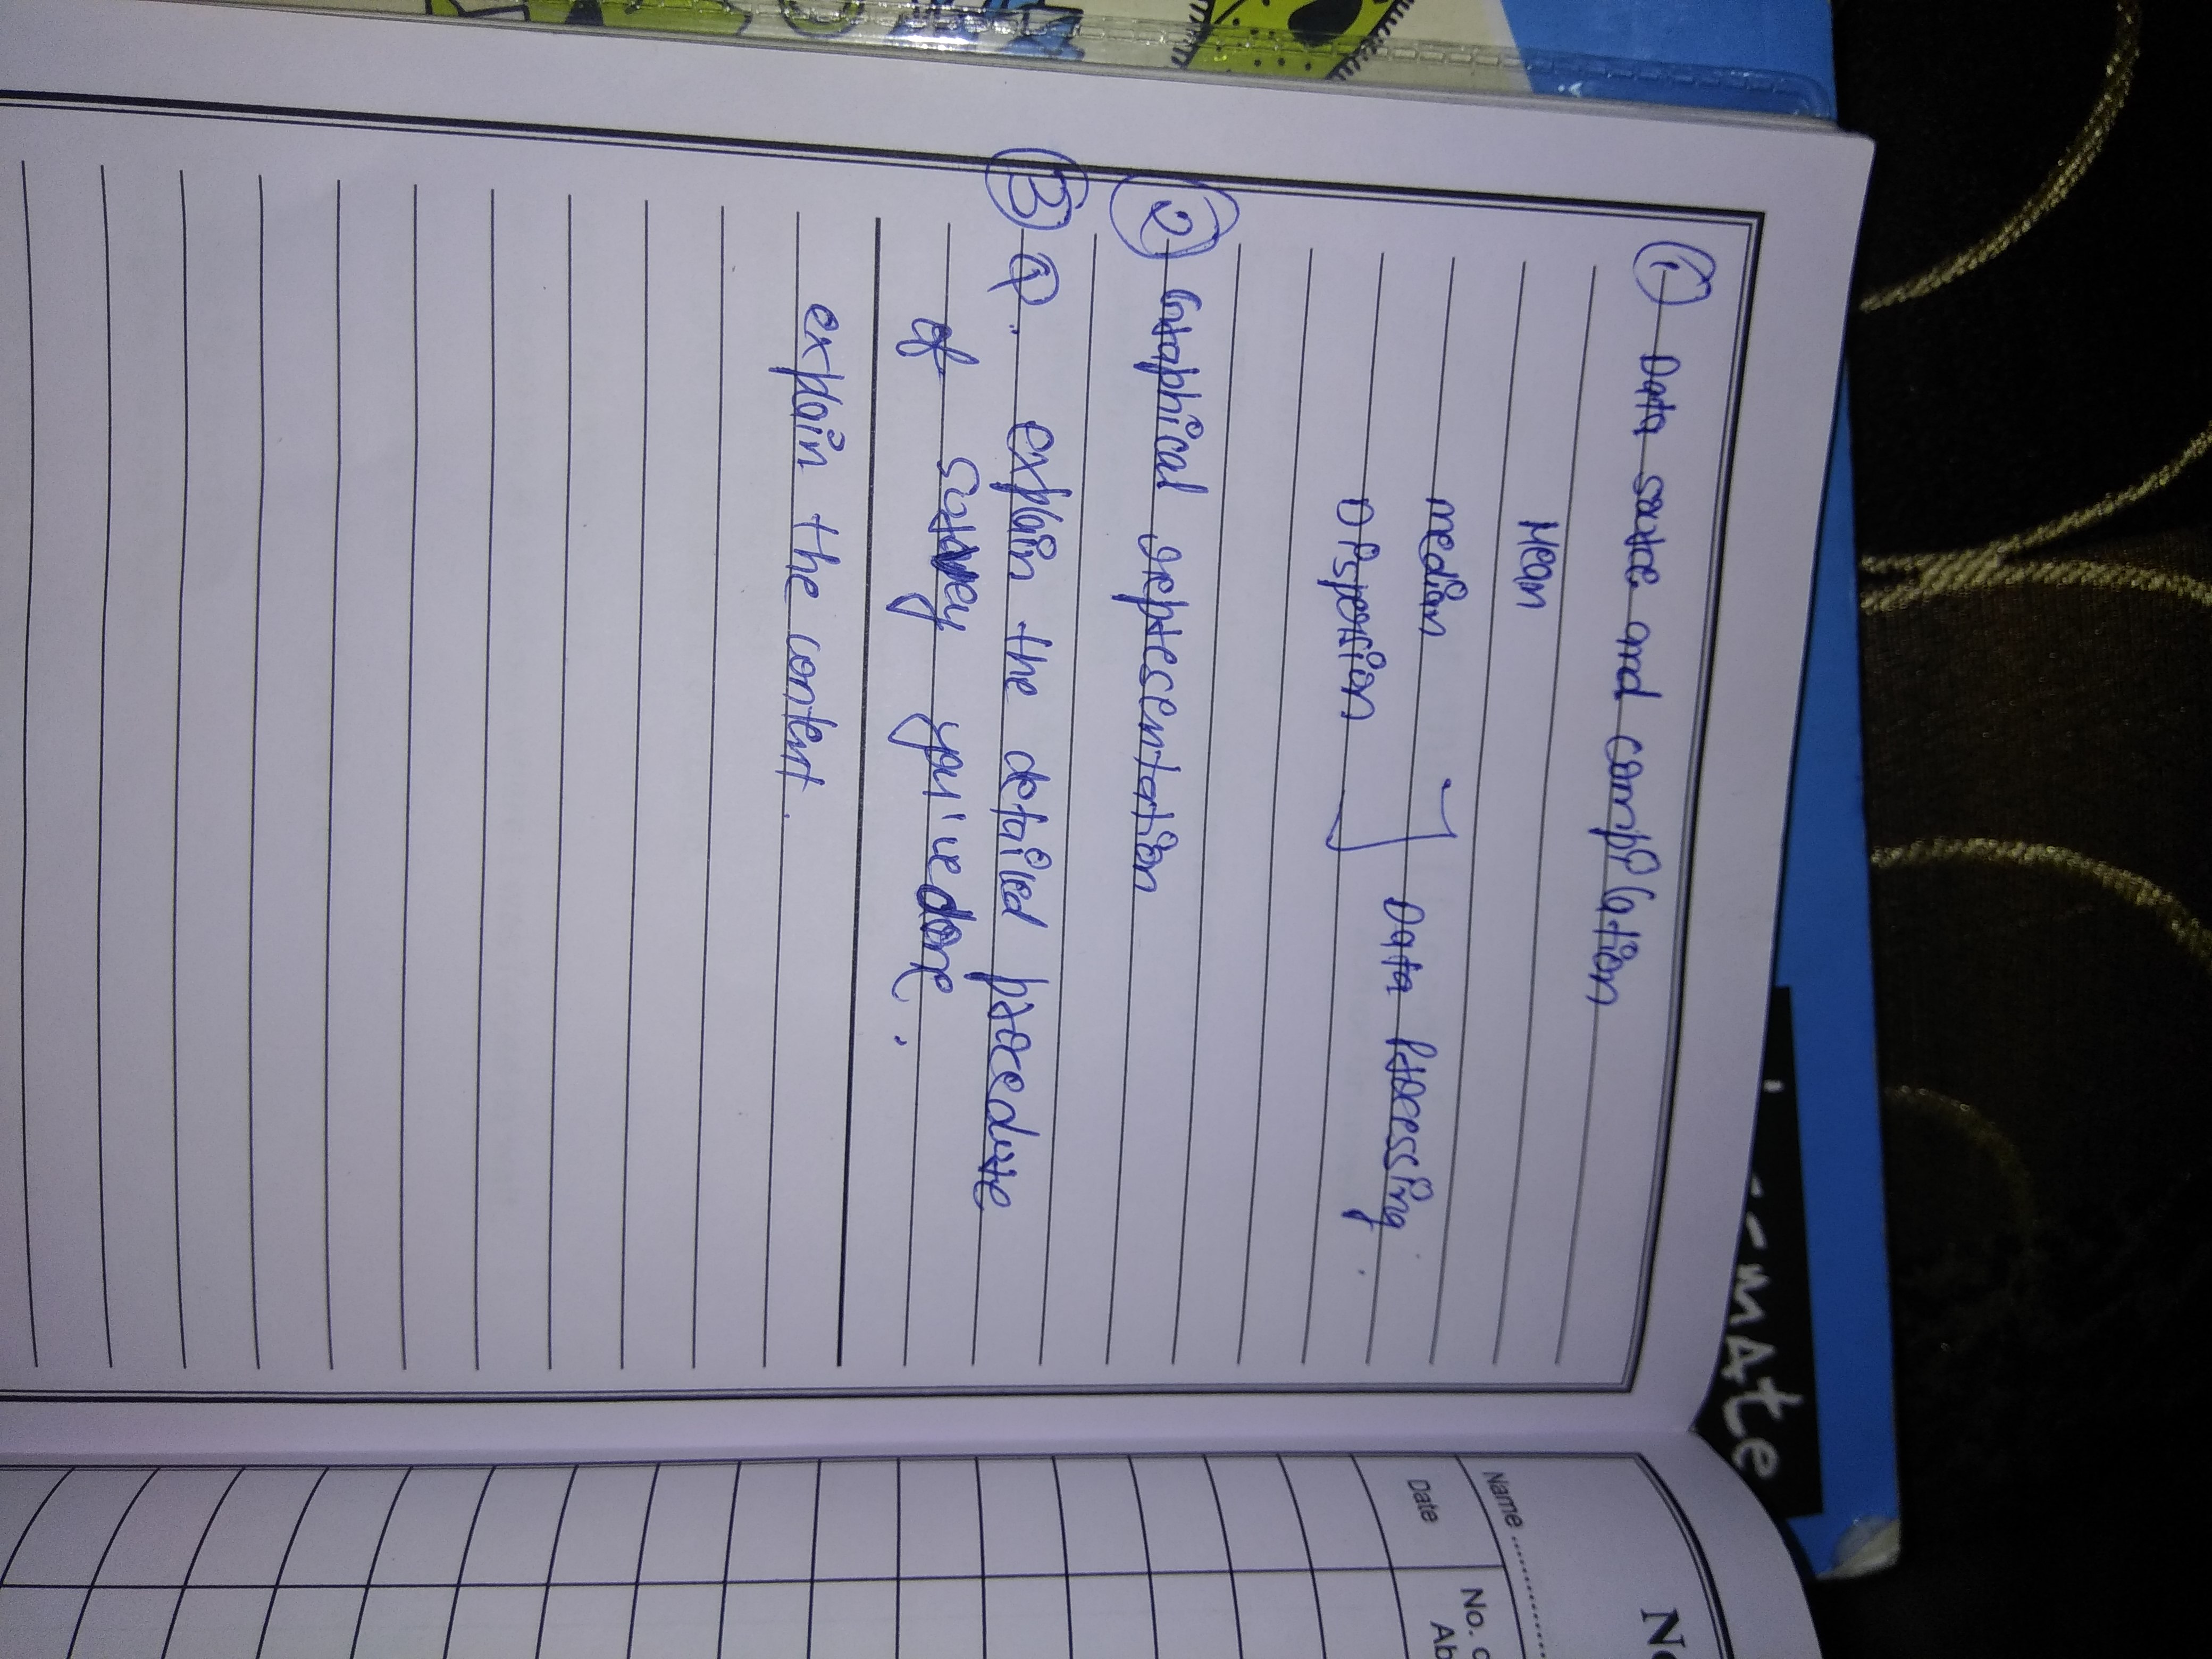 1. Data source and compilation
Mean
median
Dispersion
Data Processing.
2 Graphical representation
3 Q. explain the detailed procedure
of survey you've done.
explain the content.
Name
Date
No.